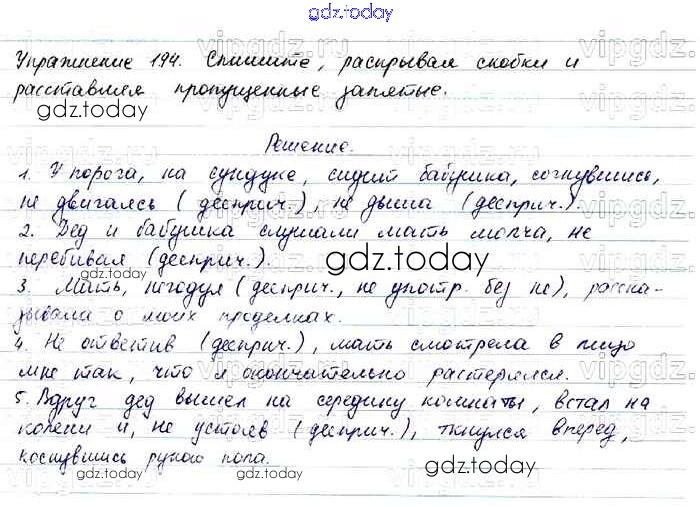 gdz.today
Упражнение 194. Спишите, раскрывая скобки и
расставляя пропущенные запятые.
gdz.today
Решение.
1. У порога, на сундуке, сидит бабушка, согнувшись,
не двигаясь (дееприч.), не дыша (дееприч.).
2. Дед и бабушка слушали мать молча, не
перебивая (дееприч.).
gdz.today
3. Мать, негодуя (дееприч., не употр. без не), расска-
зывала о моих проделках.
4. Не ответив (дееприч.), мать смотрела в лицо
мне так, что я окончательно растерялся.
5. Вдруг дед вышел на середину комнаты, встал на
колени и, не устояв (дееприч.), ткнулся вперед,
коснувшись рукою пола.
gdz.today
gdz.today